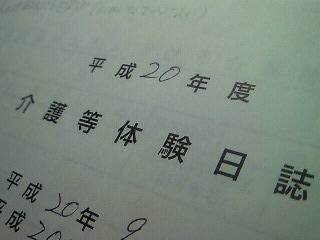 平成20年度
介護等体験日誌
平成20年9
平成20